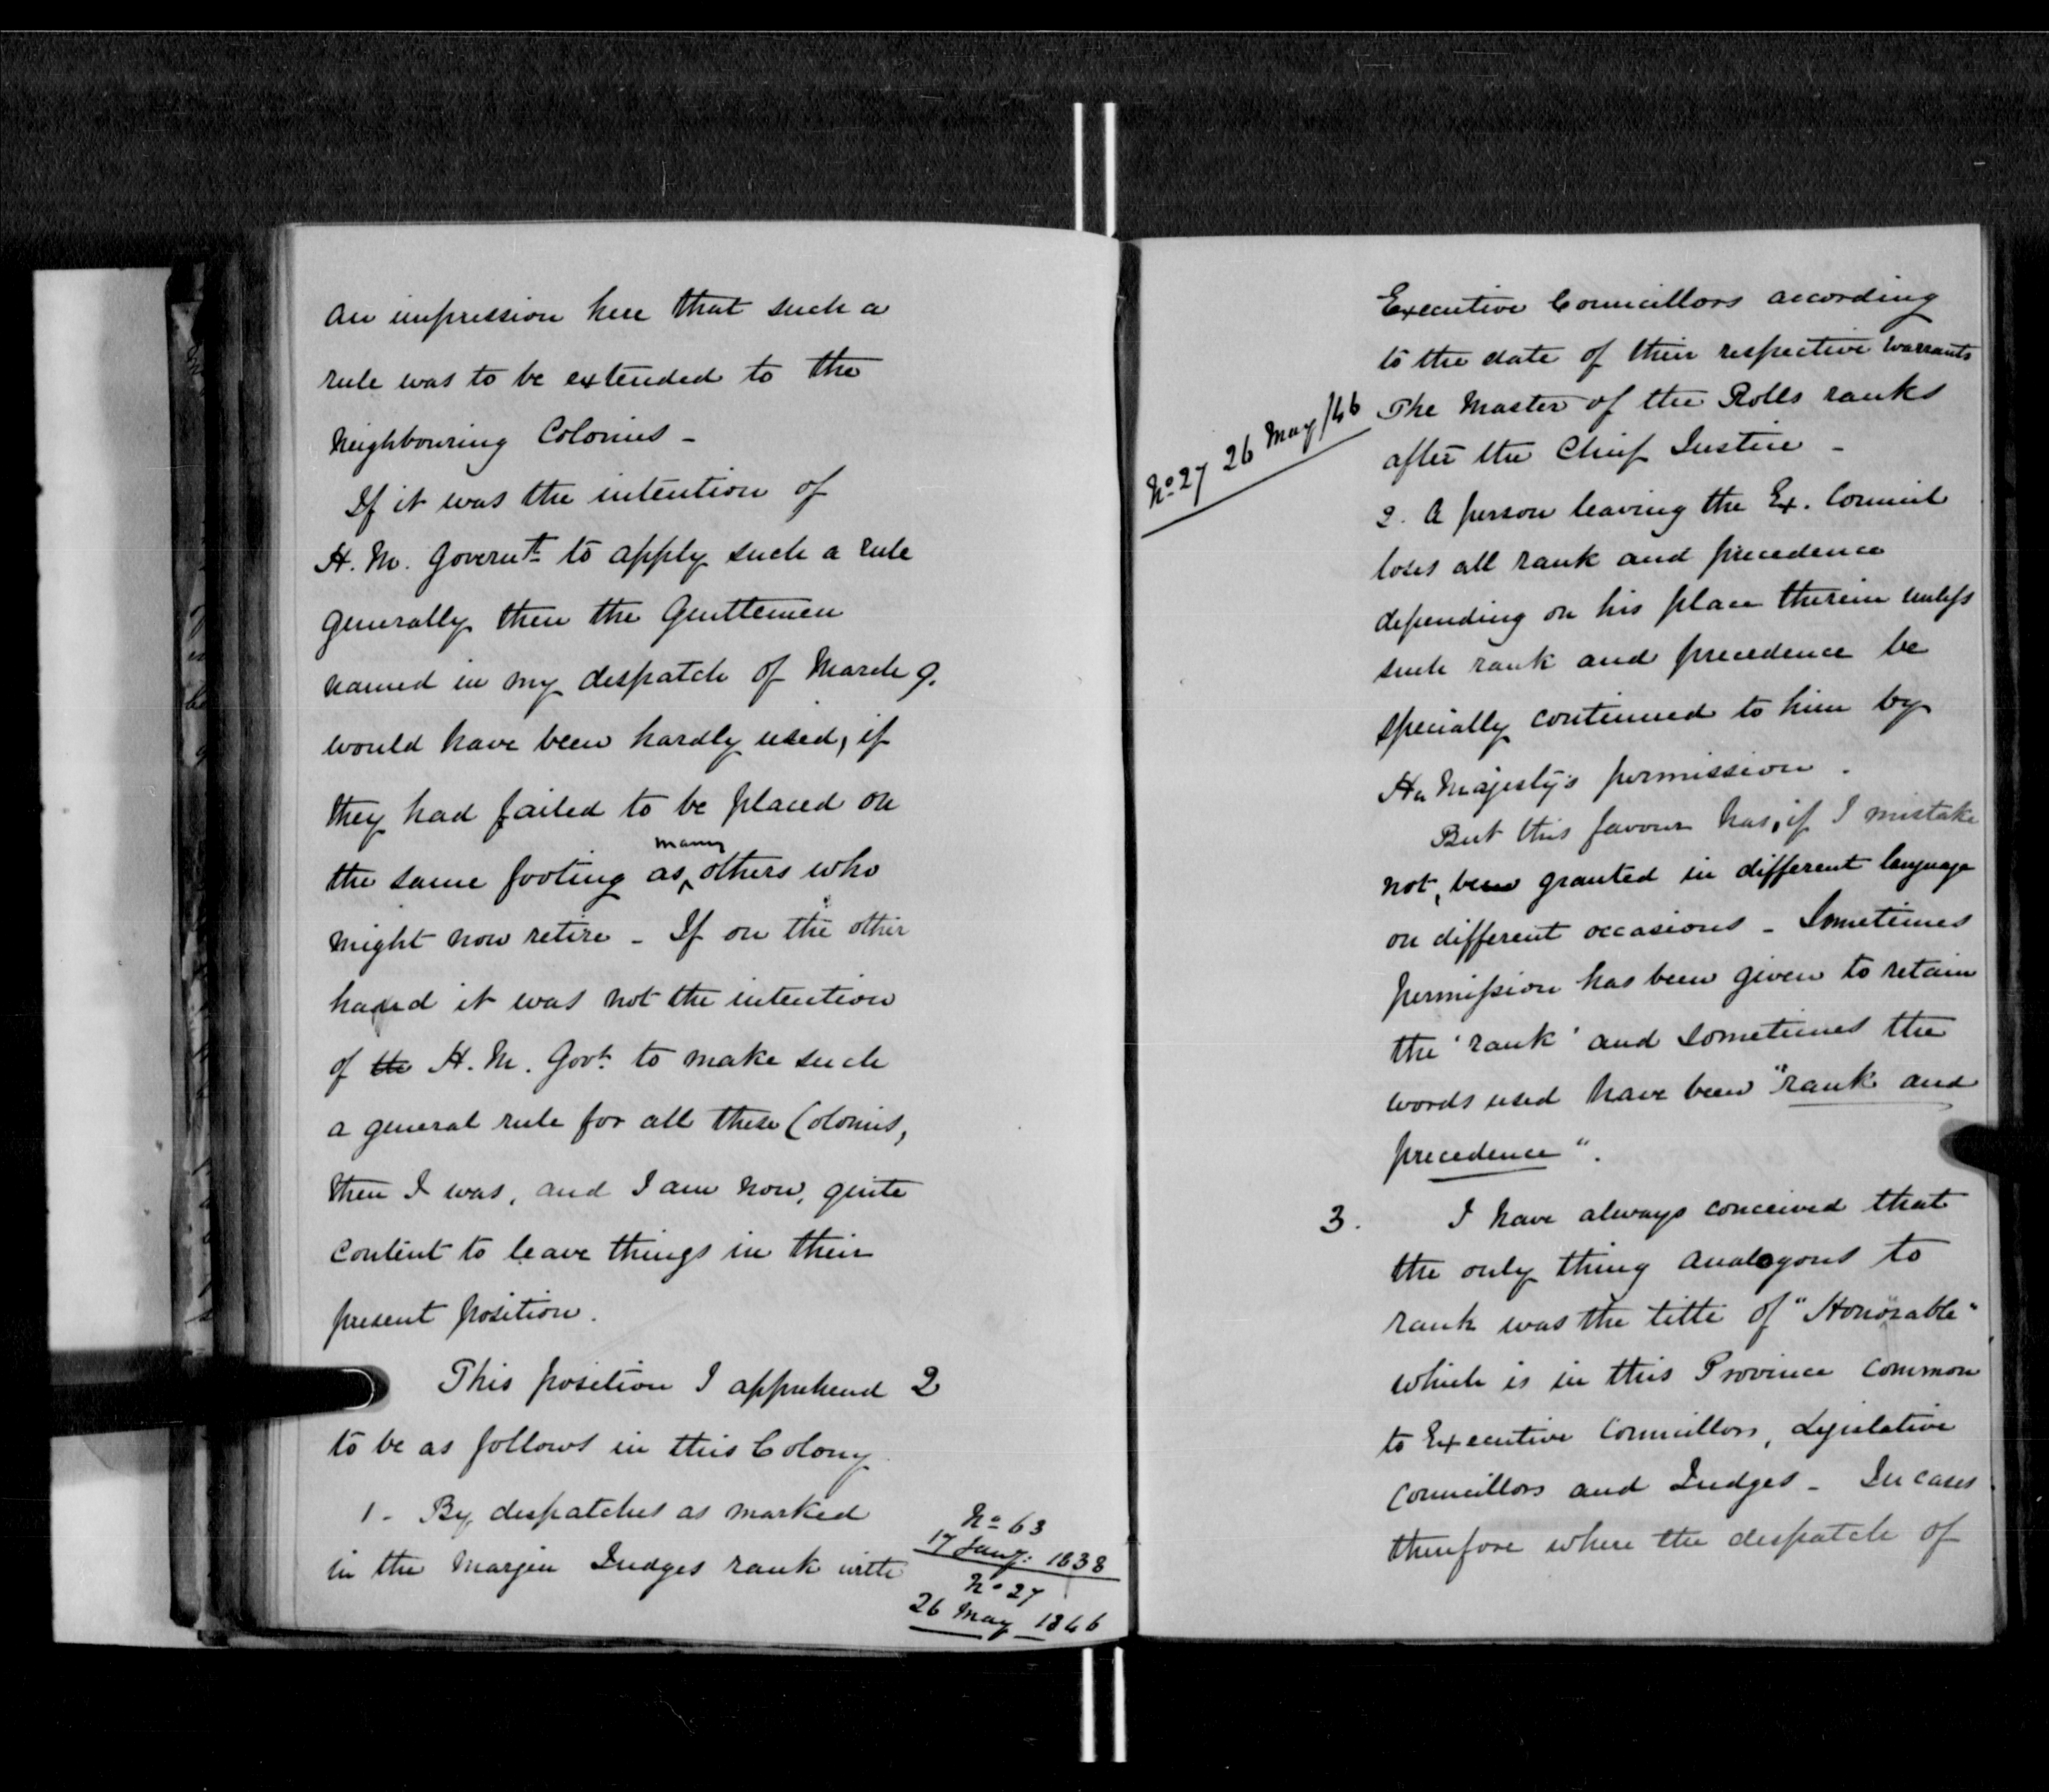 an impression here that such a
rule was to be extended to the
Neighbouring Colonies -
If it was the intention of
H. M. Governt. to apply such a rule
generally then the Gentlemen
named in my despatch of March 9.
would have been hardly used, if
they had failed to be placed on
many
the same footing as others who
might now retire - If on the other
hand it was not the intention
of the H. M. Govt. to make such
a general rule for all these Colonies,
then I was, and I am now, quite
content to leave things in their
present position.
This position I apprehend 2
to be as follows in this Colony
1 - By despatches as marked
in the Margin Judges rank with
No 63
17 Jany: 1838
No 27
26 May 1846
Executive Councillors according
to the date of their respective Warrants
No 27 26 May /46
The Master of the Rolls ranks
after the Chief Justice -
2. A person leaving the Ex. Council
loses all rank and precedence
depending on his place therein unless
such rank and precedence be
specially continued to him by
Her Majesty's permission.
But this favour has, if I mistake
not, been granted in different language
on different occasions - Sometimes
permission has been given to retain
the 'rank' and sometimes the
words used have been "rank and
precedence".
3. I have always conceived that
the only thing analogous to
rank was the title of "Honorable"
which is in this Province common
to Executive Councillors, Legislative
Councillors and Judges - In cases
therefore where the despatch of